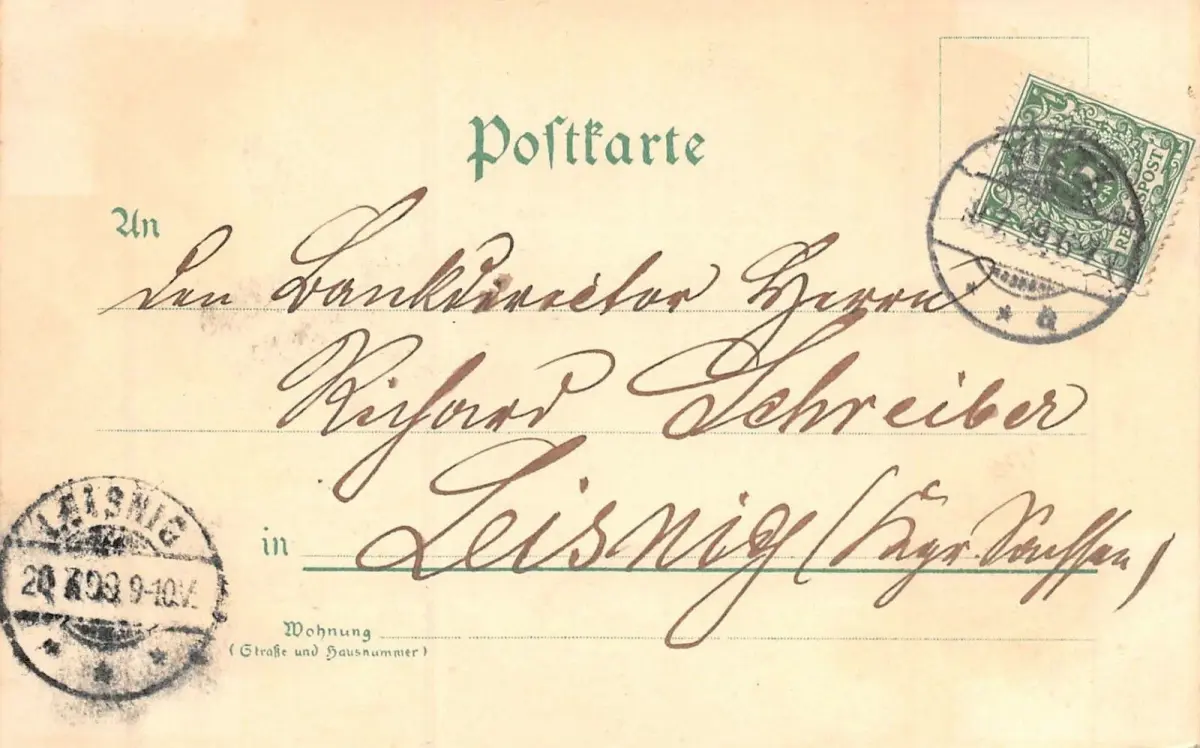 Postkarte
REICHSPOST
An
den Bankdirector Herrn
Richard Schreiber
in Leisnig (Kgr. Sachsen)
Wohnung
(Straße und Hausnummer)
LEISNIG
9-10V.